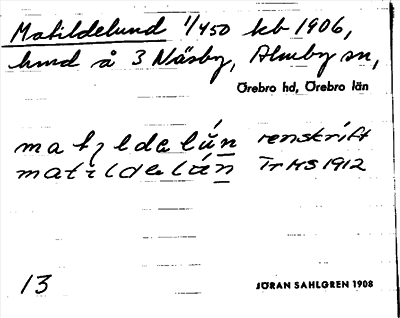 Matildelund 1/450 kb 1906,
hmd å 3 Näsby, Almby sn,
Örebro hd, Örebro län
matıldelún renskrift
matildelún Tr HS 1912
13
JÖRAN SAHLGREN 1908